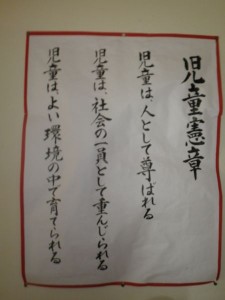 児童憲章
児童は、人として尊ばれる
児童は、社会の一員として重んじられる
児童は、よい環境の中で育てられる